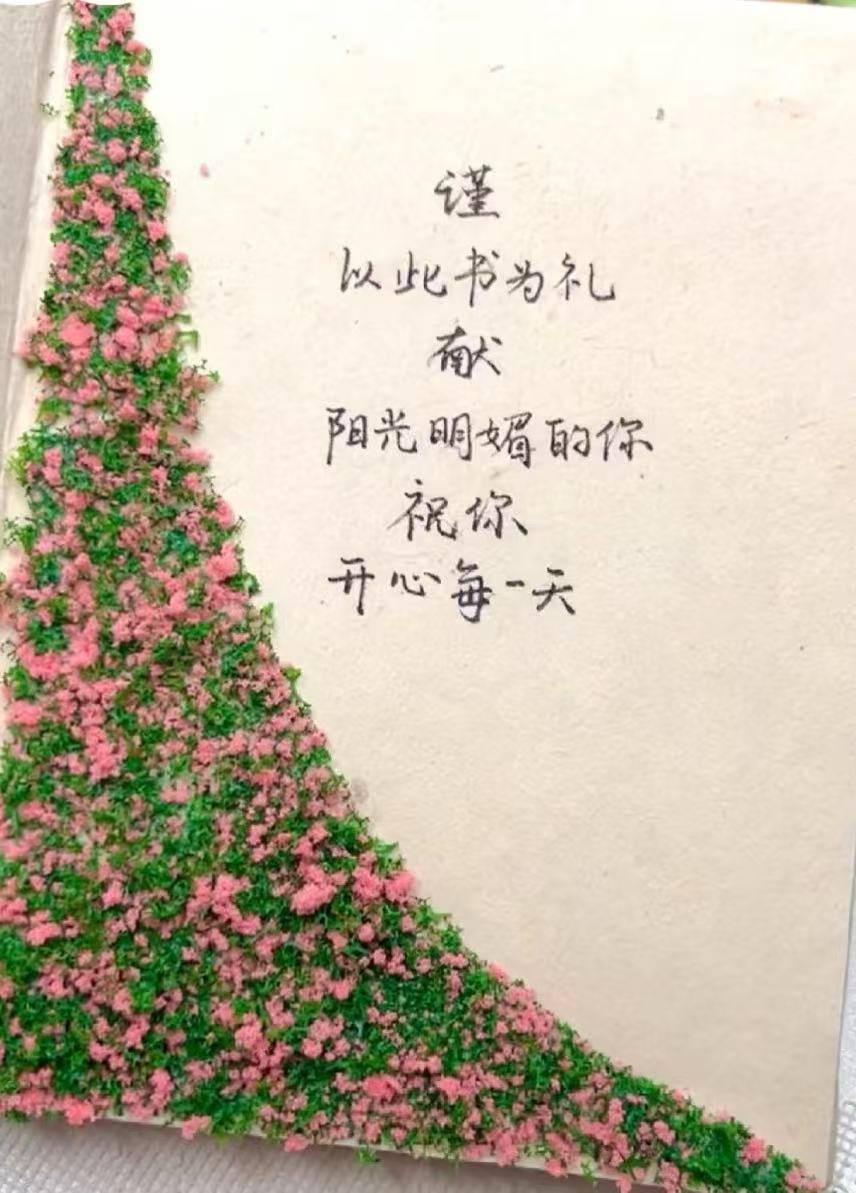 谨
以此书为礼
献
阳光明媚的你
祝你
开心每一天